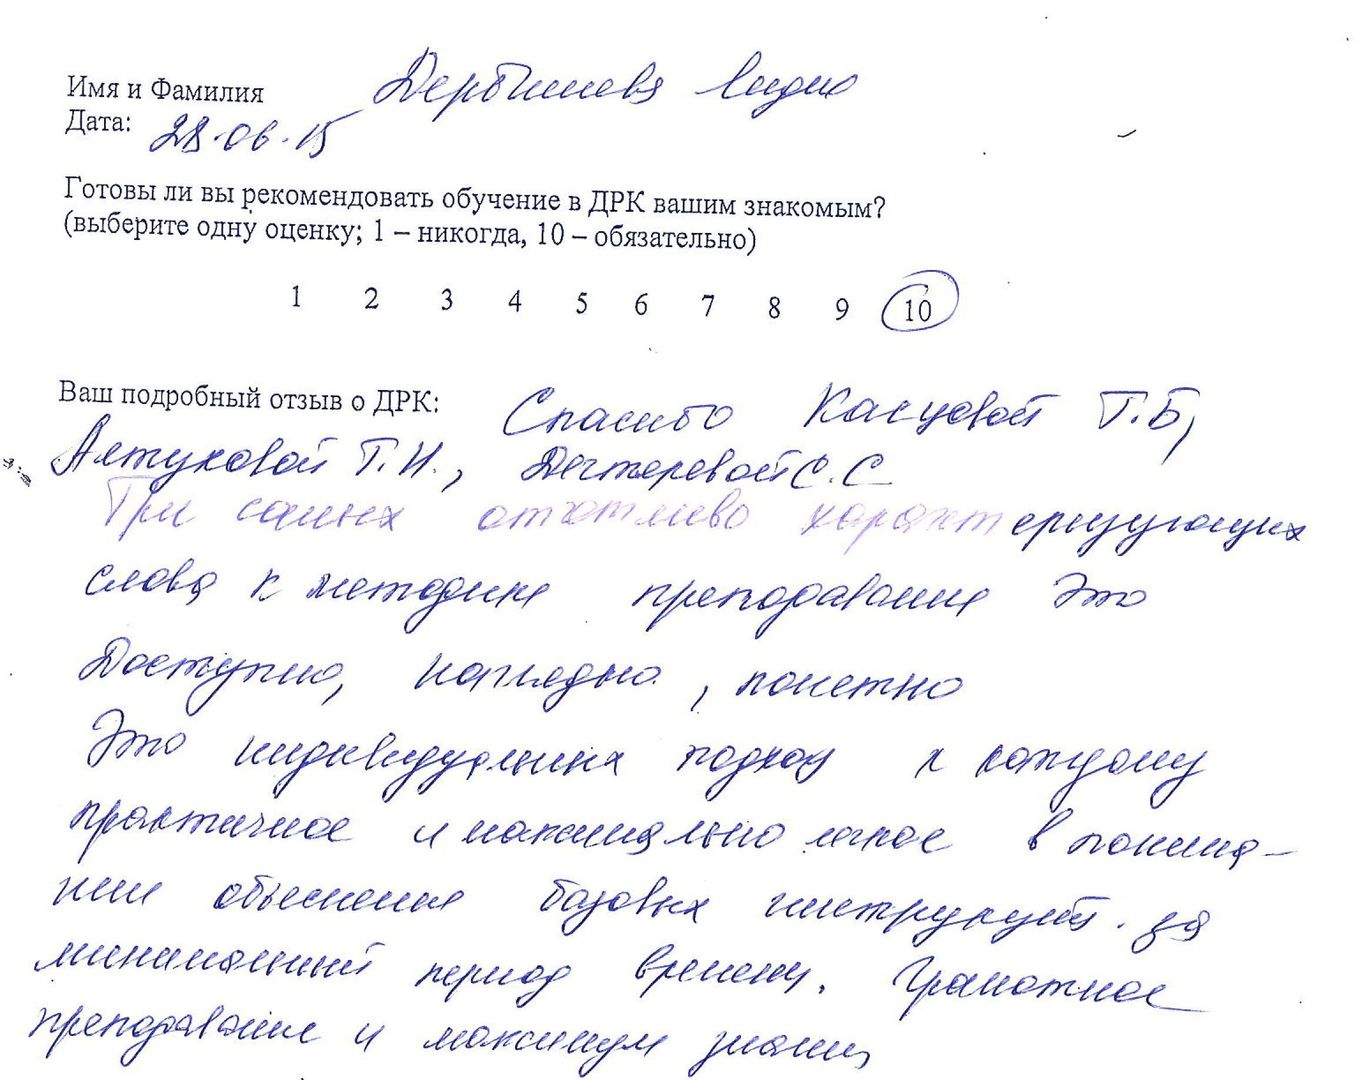 Имя и Фамилия Дербишева Лидия
Дата: 28.06.15
Готовы ли вы рекомендовать обучение в ДРК вашим знакомым?
(выберите одну оценку; 1 – никогда, 10 – обязательно)
1 2 3 4 5 6 7 8 9 10
Ваш подробный отзыв о ДРК: Спасибо Касуевой Т.Б,
Алтуховой Т.Н., Дегтеревой С.С
Три самых отчетливо характеризующих
слова к методике преподавания Это
Доступно, наглядно, понетно
Это индивидуальных подход к каждому
практичное и максимально легкое в понима-
нии объеснение базовых инструкций. за
минимальный период времени. Грамотное
преподавание и максимум знаний